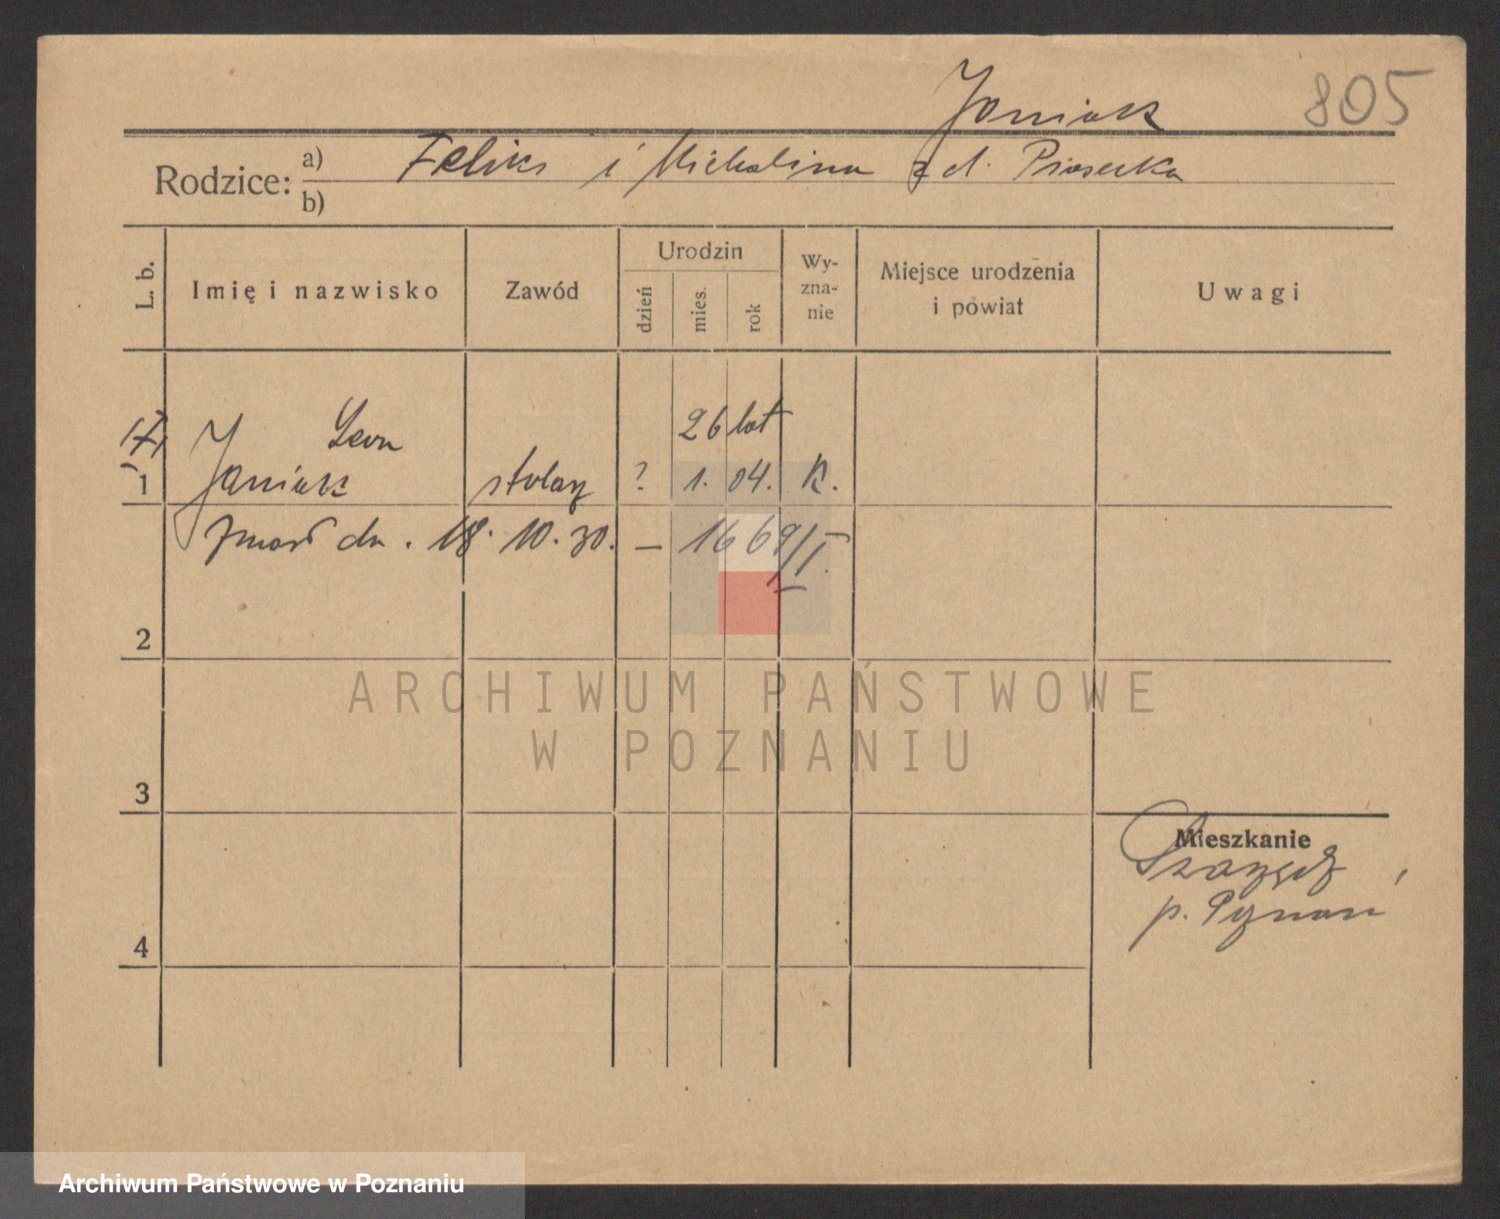 Janiak 805
Rodzice: a) Feliks i Michalina z d. Piasecka
b)
L. b.
Imię i nazwisko
Zawód
Urodzin
dzień
mies.
rok
Wy-
zna-
nie
Miejsce urodzenia
i powiat
Uwagi
Leon 26 lat
1 Janiak stolarz ? 1. 04. K.
zmarł dn. 18. 10. 30. — 1669/I.
2
ARCHIWUM PAŃSTWOWE
W POZNANIU
3
Mieszkanie
p. Poznań
4
Archiwum Państwowe w Poznaniu